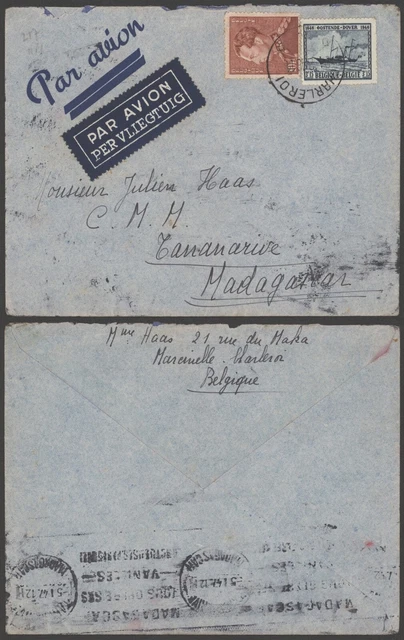 Par avion
PAR AVION
PER VLIEGTUIG
1846 OOSTENDE-DOVER 1946
BELGIQUE-BELGIE
CHARLEROI
Monsieur Julien Haas
C. M. M.
Tananarive
Madagascar
Mme Haas 21 rue du Maka
Marcinelle Charleroi
Belgique
VANILLES
MADAGASCA